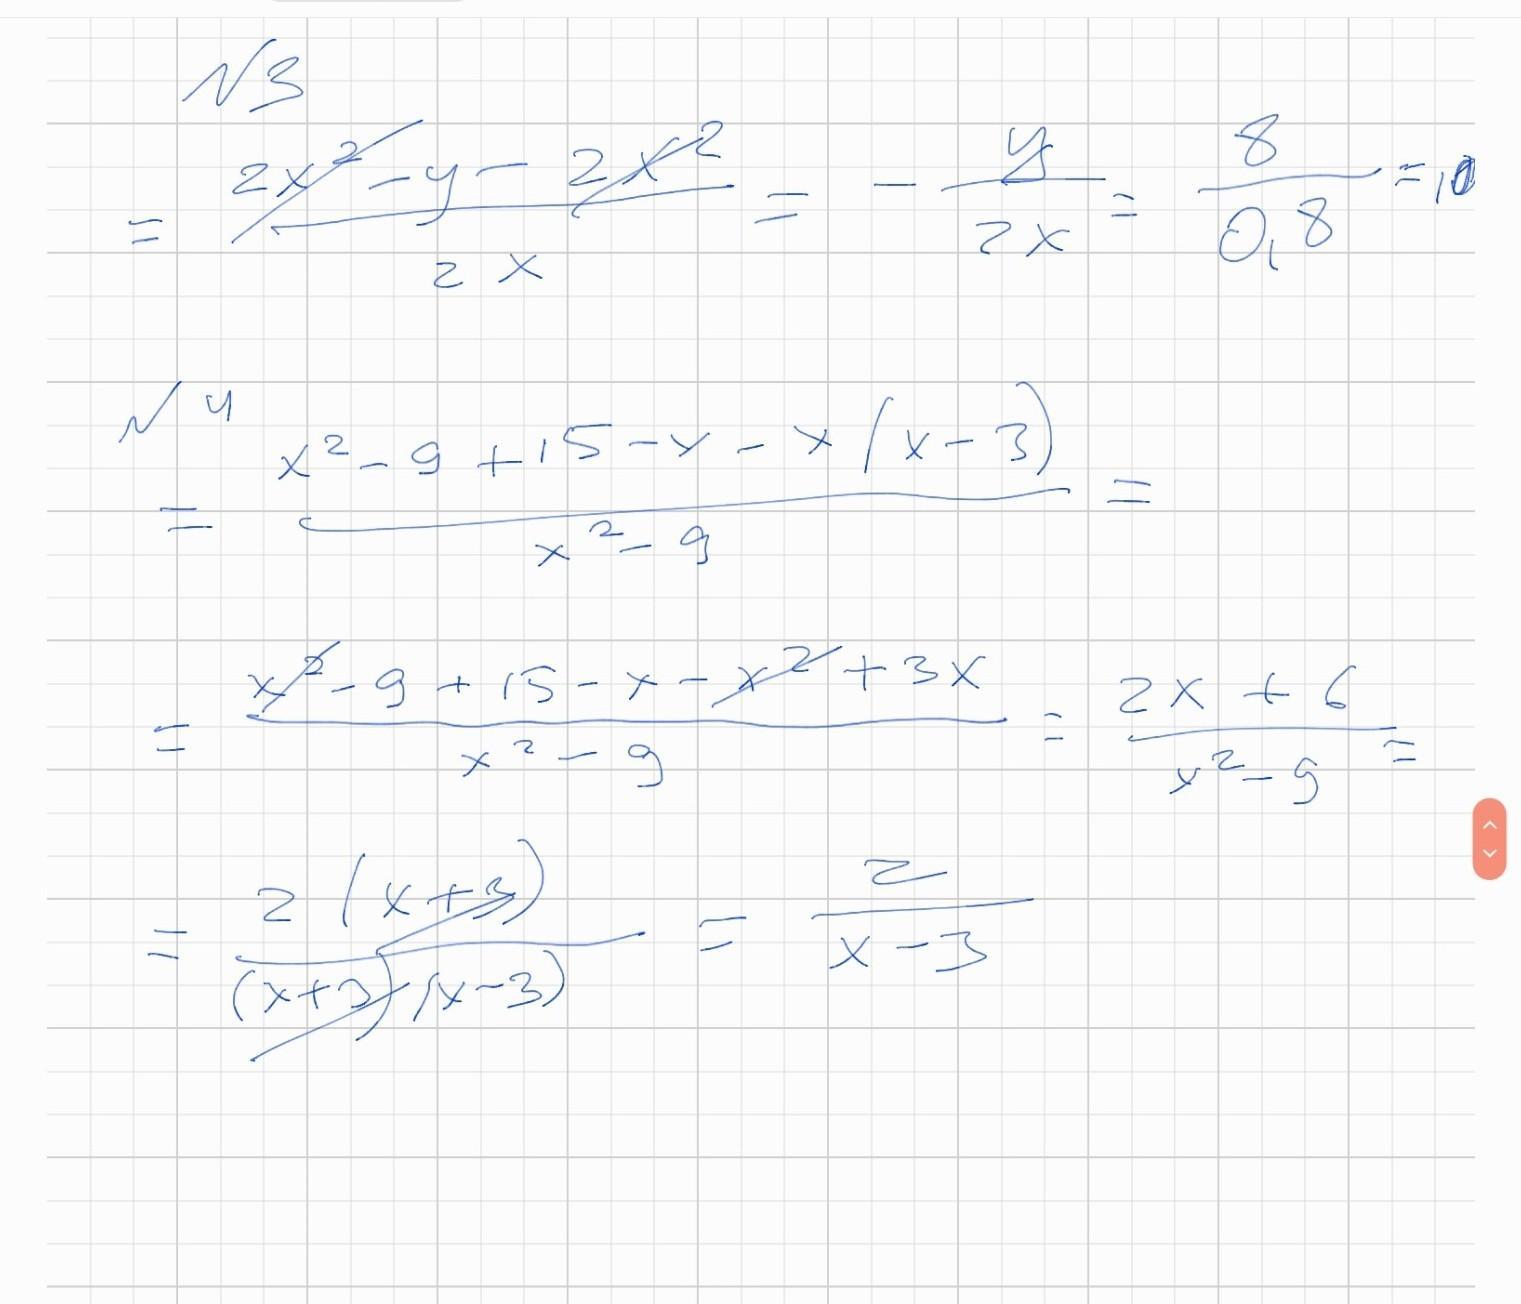 №3
= (2x² - y - 2x²) / (2x) = - y / (2x) = 8 / 0,8 = 10
№4
= (x² - 9 + 15 - x - x(x - 3)) / (x² - 9) =
= (x² - 9 + 15 - x - x² + 3x) / (x² - 9) = (2x + 6) / (x² - 9) =
= 2(x+3) / ((x+3)(x-3)) = 2 / (x - 3)